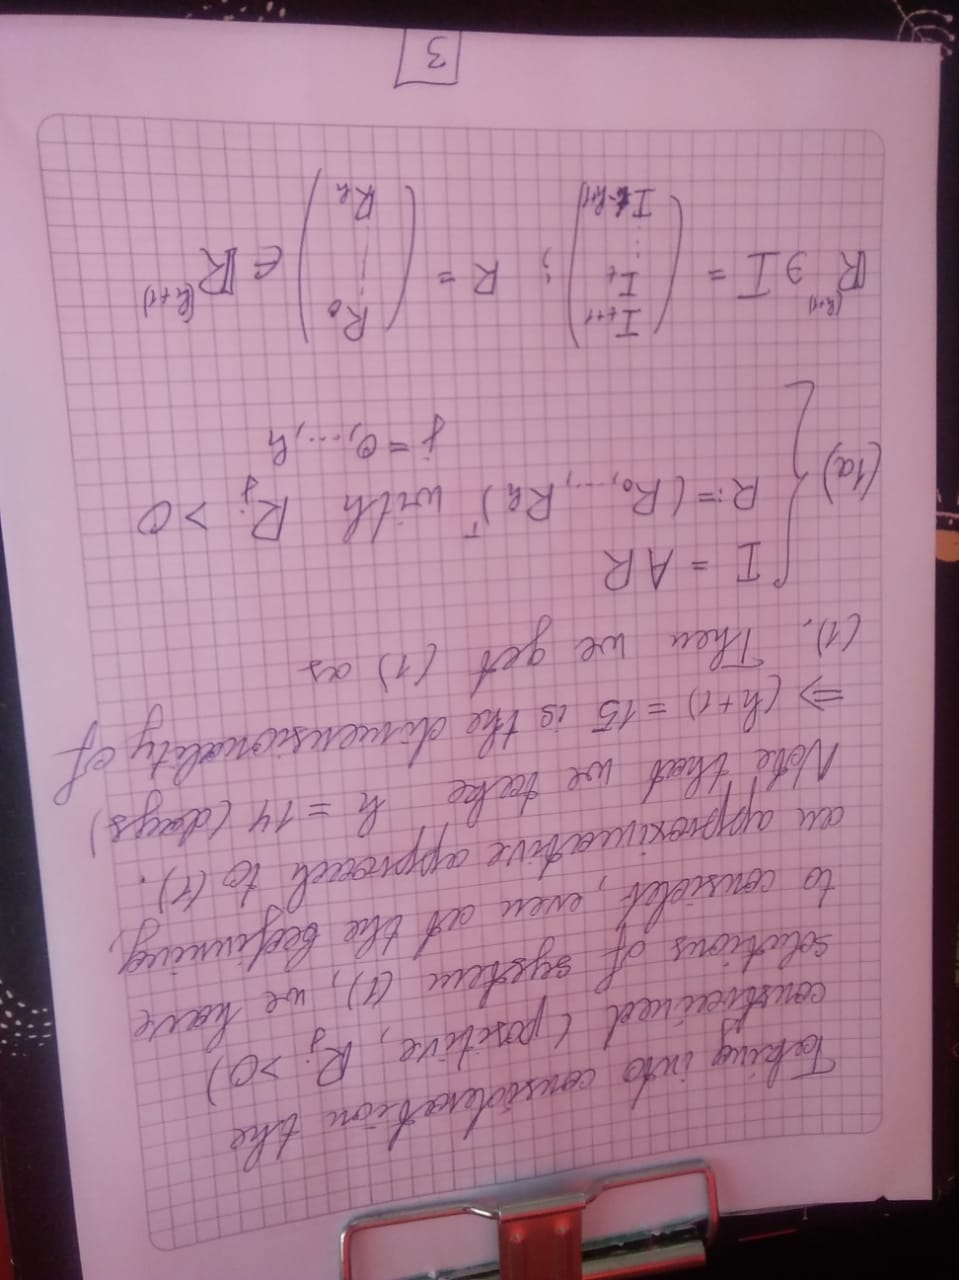 Taking into consideration the
constrained (positive, R_j >0)
solutions of system (1), we have
to consider, even at the beginning,
an approximative approach to (1).
Note that we take h = 14 (days)
⇒ (h+1) = 15 is the dimensionality of
(1). Then we get (1) as
I = AR
(1a) { R := (R₀, ..., R_h)^T with R_j > 0
j = 0, ..., h
ℝ^(h+1) ∋ I = ( I_{t+1} I_t ⋮ I_{t-h+1} ) ; R = ( R₀ ⋮ R_h ) ∈ ℝ^(h+1)
3